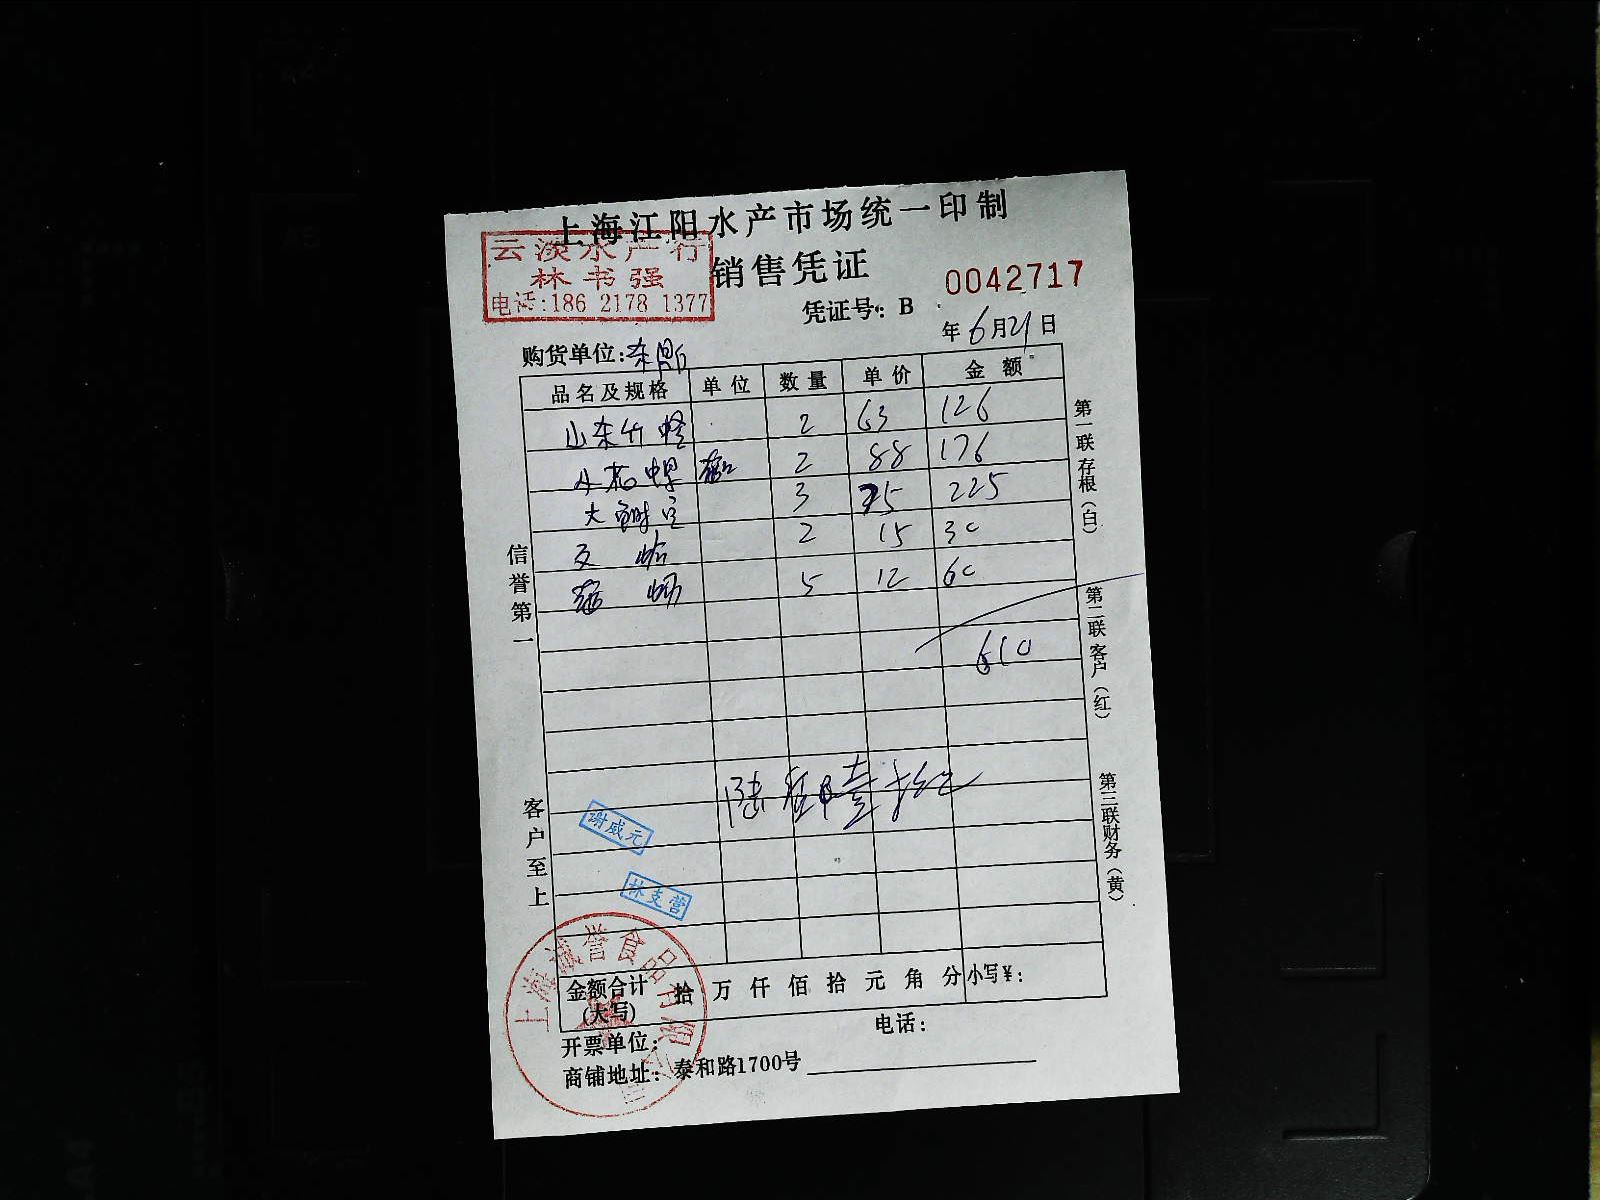 上海江阳水产市场统一印制
云淡水产行
林书强
电话:186 2178 1377
销售凭证
0042717
凭证号: B
年 6月21日
购货单位:东
品名及规格 单位 数量 单价 金额
山东竹蛏 2 63 126
2 88 176
大 3 75 225
2 15 30
5 12 60
610
信誉第一
客户至上
第一联存根(白)
第二联客户(红)
第三联财务(黄)
谢威元
林支营
上海诚誉食品有限公司
金额合计(大写) 拾 万 仟 佰 拾 元 角 分 小写¥:
开票单位: 电话:
商铺地址: 泰和路1700号